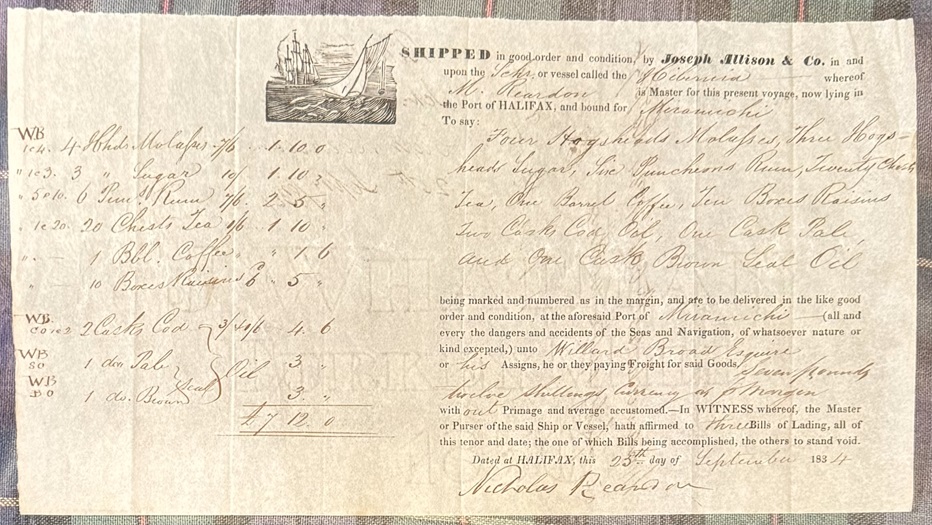 SHIPPED in good order and condition, by Joseph Allison & Co. in and
upon the Schr. or vessel called the Hibernia whereof
M. Reardon is Master for this present voyage, now lying in
the Port of HALIFAX, and bound for Miramichi
To say:
Four Hogsheads Molaſses, Three Hogs-
heads Sugar, Six Puncheons Rum, Twenty Chests
Tea, One Barrel Coffee, Ten Boxes Raisins
Two Casks Cod Oil, One Cask Pale,
and One Cask Brown Seal Oil
WB
1 @ 4. 4 Hhds Molaſses 7/6 1. 10. 0
" 1 @ 3. 3 " Sugar 10/ 1. 10 "
" 5 @ 10. 6 Pun. Rum 7/6. 2. 5 "
" 1 @ 20. 20 Chests Tea 1/6 . 1. 10 "
" — 1 Bbl. Coffee " 1 6
" 10 Boxes Raisins 6 " 5 "
WB
CO 1 @ 2 2 Casks Cod 4. 6
WB
SO 1 do. Pale Seal Oil 3 "
WB
BO 1 do. Brown 3. "
£7 12. 0
being marked and numbered as in the margin, and are to be delivered in the like good
order and condition, at the aforesaid Port of Miramichi — (all and
every the dangers and accidents of the Seas and Navigation, of whatsoever nature or
kind excepted,) unto Willard Broad Esquire
or his Assigns, he or they paying Freight for said Goods, Seven pounds
twelve shillings, Currency as p Margin
with out Primage and average accustomed.—In WITNESS whereof, the Master
or Purser of the said Ship or Vessel, hath affirmed to three Bills of Lading, all of
this tenor and date; the one of which Bills being accomplished, the others to stand void.
Dated at HALIFAX, this 25th day of September 1834
Nicholas Reardon